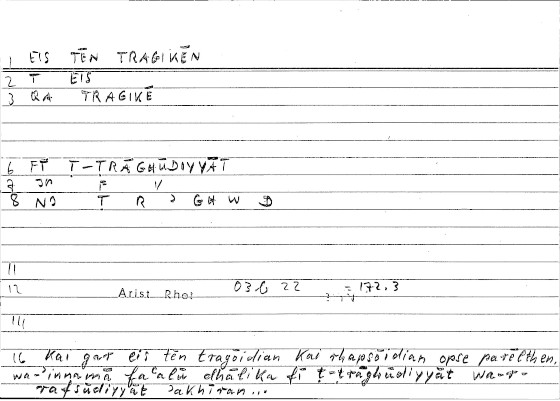 1 EIS TĒN TRAGIKĒN
2 T EIS
3 QA TRAGIKĒ
6 FĪ Ṭ-ṬRĀGHŪDIYYĀT
7 F Y
8 Nʾ Ṭ R ʾ GH W D
11
12 Arist Rhet 03b 22 = 172.3
14
16 Kai gar eis tēn tragōidian kai rhapsōidian opse parēlthen.
wa-ʾinnamā faʿalū dhālika fī ṭ-ṭrāghūdiyyāt wa-r-
rafsūdiyyāt ʾakhīran...